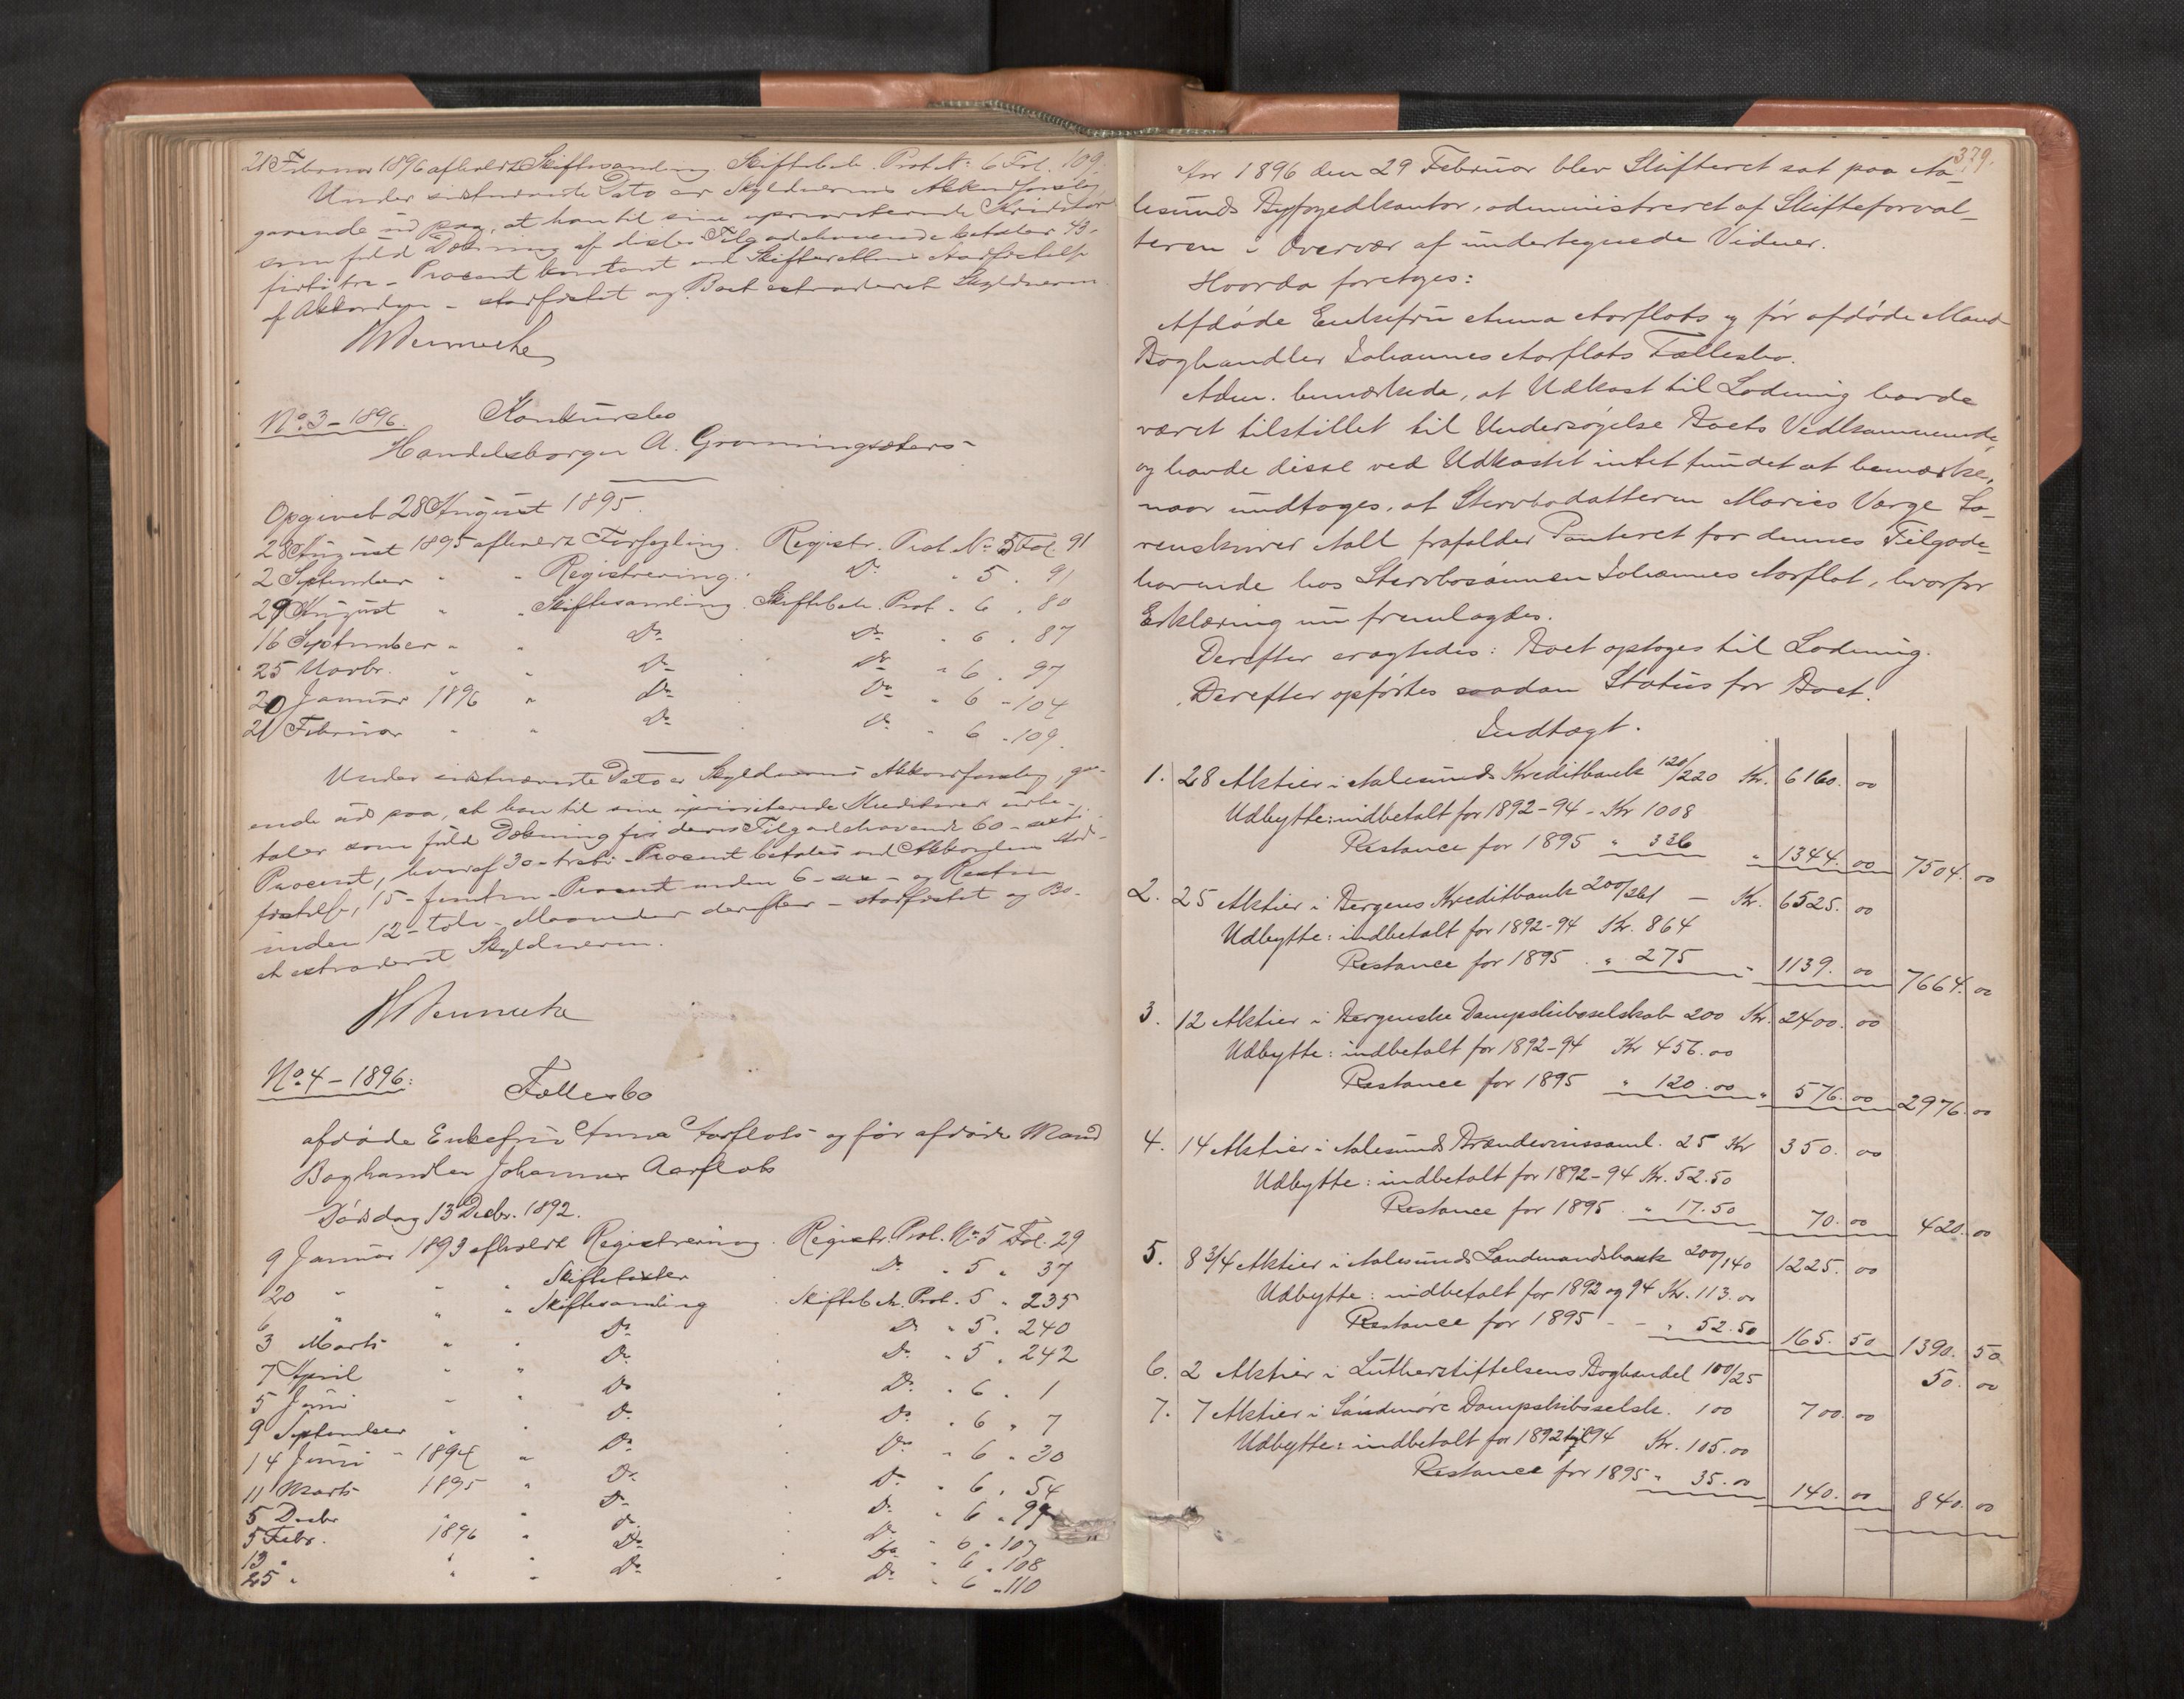 21 Februar 1896 afholdt Skiftesamling. Skiftebeh. Prot. No 6 Fol. 109.
Under sidstnævnte Dato er Skyldnerens Akkordforslag,
gaaende ud paa, at han til sine uprioriterede Kreditorer
som fuld Dækning af disses Tilgodehavende betaler 43-
firti tre - Procent kontant ved Skifterettens Stadfæstelse
af Akkorden - stadfæstet og Boet extraderet Skyldneren
No. 3 - 1896. Konkursbo
Handelsborger A. Grønningsæters
Opgivet 28 August 1895.
28 August 1895 afholdt Forsegling. Registr. Prot. No. 5 Fol. 91
2 September " " Registrering. Do. " 5 . 91
29 August " " Skiftesamling. Skiftebeh. Prot. " 6 . 80
16 September " " Do. Do. " 6 . 87
25 Novbr. " " Do. Do. " 6 . 97
20 Januar 1896 " Do. Do. " 6 " 104
21 Februar " " Do. Do. " 6 . 109.
Under sidstnævnte Dato er Skyldnerens Akkordforslag, gaa-
ende ud paa, at han til sine uprioriterede Kreditorer udbe-
taler som fuld Dækning for deres Tilgodehavende 60 - sexti -
Procent, hvoraf 30 - treti - Procent betales ved Akkordens Stad-
fæstelse, 15 - femten - Procent inden 6 - sex - og Resten
inden 12 - tolv - Maaneder derefter - stadfæstet og Bo-
et extraderet Skyldneren.
No. 4 - 1896: Fællesbo
afdøde Enkefru Anna Aarflots og før afdøde Mand
Boghandler Johannes Aarflots
Dødsdag 13 Decbr. 1892.
9 Januar 1893 afholdt Registrering. Registr. Prot. No. 5 Fol. 29
20 " " " Do. " 5 " 37
6 " " " Skiftesamling . Skiftebeh. Prot. 5 " 235
3 Marts " " Do. Do. " 5 . 240
7 April " " Do. Do. " 5 . 242
5 Juni " " Do. Do. " 6 . 1
9 September " " Do. Do. " 6 " 7
14 Juni " 1894 " Do. Do. " 6 " 30
11 Marts 1895 " Do. Do. " 6 . 54
5 Decbr " " Do. Do. " 6 . 99
5 Febr. 1896 " Do. Do. " 6 " 107
13 " " " Do. Do. " 6 . 108
25 " " " Do. Do. " 6 " 110
379.
Aar 1896 den 29 Februar blev Skifteret sat paa Aa-
lesunds Byfogedkontor, administreret af Skifteforval-
teren i Overvær af undertegnede Vidner.
Hvorda foretoges:
Afdøde Enkefru Anna Aarflots og før afdøde Mand
Boghandler Johannes Aarflots Fællesbo.
Adm. bemærkede, at Udkast til Lodning havde
været tilstillet til Undersøgelse Boets Vedkommende,
og havde disse ved Udkastet intet fundet at bemærke,
naar undtages, at Stervbodatteren Maries Værge La-
renskriver Aall frafalder Panteret for dennes Tilgode-
havende hos Stervbosønnen Johannes Aarflot, hvorfor
Erklæring nu fremlagdes.
Derefter eragtedes: Boet optages til Lodning.
Derefter opførtes saadan Status for Boet.
Indtægt.
1. 28 Aktier i Aalesunds Kreditbank 120/220 Kr. 6160. 00
Udbytte: indbetalt for 1892-94 - Kr 1008
Restance for 1895 " 336 " 1344. 00 7504. 00
2. 25 Aktier i Bergens Kreditbank 200/261 - Kr. 6525. 00
Udbytte: indbetalt for 1892-94 Kr. 864
Restance for 1895 . " 275 " 1139. 00 7664. 00
3. 12 Aktier i Bergenske Dampskibsselskab 200 Kr. 2400. 00
Udbytte: indbetalt for 1892-94 Kr 456.00
Restance for 1895 " 120.00 " 576. 00 2976. 00
4. 14 Aktier i Aalesunds Brændevinssaml. 25 Kr 350. 00
Udbytte: indbetalt for 1892-94 Kr. 52.50
Restance for 1895 . " 17.50 70. 00 420. 00
5. 8 3/4 Aktier i Aalesunds Landmandsbank 200/140 1225. 00
Udbytte: indbetalt for 1892 og 94 Kr. 113.00
Restance for 1895 - - " 52.50 165. 50 1390. 50
6. 2 Aktier i Lutherstiftelsens Boghandel 100/25 50. 00
7. 7 Aktier i Søndmøre Dampskibsselsk. 100 700. 00
Udbytte: indbetalt for 1892 til 94 Kr. 105.00
Restance for 1895 " 35.00 140. 00 840. 00